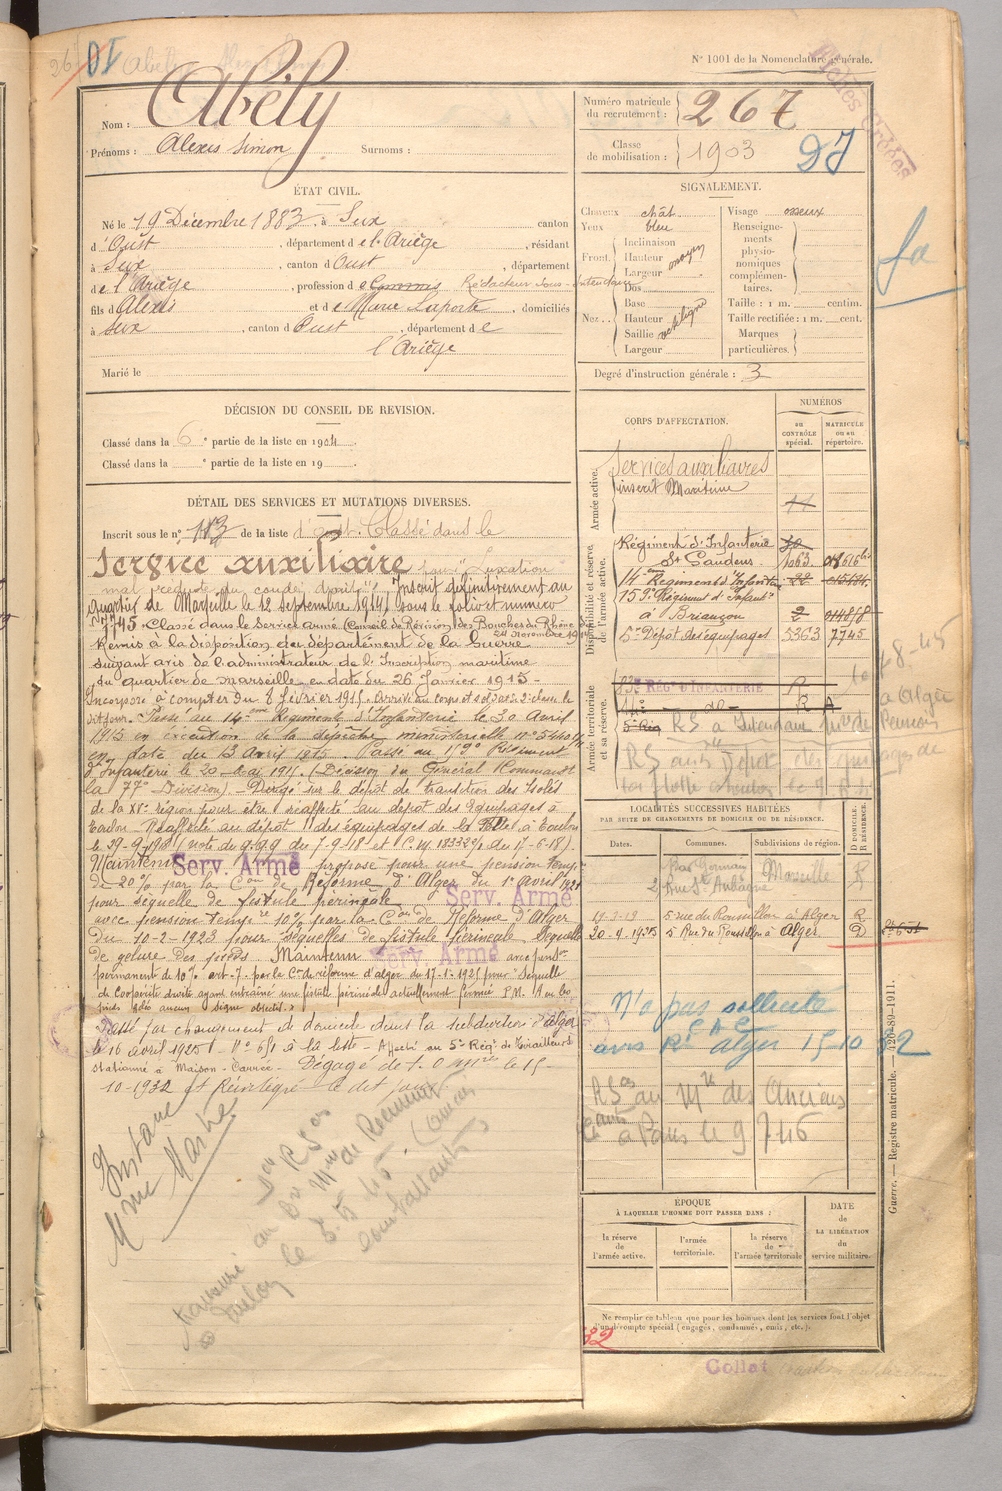 N° 1001 de la Nomenclature générale.
Nom : Abély
Prénoms : Alexis Simon Surnoms :
Numéro matricule du recrutement : 267
Classe de mobilisation : 1903
ÉTAT CIVIL.
Né le 19 Décembre 1883, à Seix canton
d'Oust, département de l'Ariège, résidant
à Seix, canton d'Oust, département
de l'Ariège, profession de Commis Rédacteur Sous-Intendance
fils d'Alexis et de Marie Laporte, domiciliés
à Seix, canton d'Oust, département de
l'Ariège
Marié le
SIGNALEMENT.
Cheveux chât.
Yeux bleu
Front. Inclinaison
Hauteur moyen
Largeur
Nez.. Dos
Base
Hauteur
Saillie rectiligne
Largeur
Visage osseux
Renseignements physionomiques complémentaires.
Taille : 1 m. centim.
Taille rectifiée : 1 m. cent.
Marques particulières.
Degré d'instruction générale : 3
DÉCISION DU CONSEIL DE REVISION.
Classé dans la 6e partie de la liste en 1904.
Classé dans la e partie de la liste en 19 .
DÉTAIL DES SERVICES ET MUTATIONS DIVERSES.
Inscrit sous le n° 113 de la liste d'Oust. Classé dans le
Service auxiliaire pour Luxation
mal réduite du coude droit. Inscrit définitivement au
quartier de Marseille le 12 septembre 1914 sous le folio et numéro
7745 Classé dans le Service armé (Conseil de Révision des Bouches du Rhône du
24 novembre 19
Remis à la disposition du département de la Guerre
suivant avis de l'administrateur de l'Inscription maritime
du quartier de marseille en date du 26 Janvier 1915-
Incorporé à compter du 8 février 1915. Arrivé au corps et
dit jour. Passé au 14eme Régiment d'Infanterie le 30 Avril
1915 en exécution de la dépêche ministérielle N°
en date du 13 Avril 1915. Passé au 159e Régiment
d'Infanterie le 20 mai 1915 (Décision du Général Commandt
la 77e Division) - Dirigé sur le dépôt de transition des Isolés
de la XVe région pour être réaffecté au dépôt des Equipages à
Toulon - Réaffecté au dépôt des équipages de la Flotte à Toulon
le 29-9-18 (note du G.Q.G du 7-9-18 et C.M. 18332 du 17-6-18).
Maintenu Serv. Armé proposé pour une pension temp.
de 20% par la Con de Réforme d'Alger du 1er avril 1921
pour séquelle de fistule périnéale Serv. Armé
avec pension tempre 10% par la Con de Réforme d'Alger
du 10-2-1923 pour séquelles de fistule périnéale Séquelle
de gelure des pieds Maintenu Serv. Armé avec pension
permanent de 10% art. 7. par la Con de réforme d'alger du 17-1-1925 pour "Séquelle
de Coopérite droite ayant entraîné une fistule périnéale actuellement fermée P.M.
pieds gelés aucun signe objectif.»
Passé par changement de domicile dans la subdivision d'Alger
le 16 avril 1925 N° 651 à la liste - Affecté au 5e Régt de Tirailleurs
stationné à Maison-Carrée. Dégagé de t. o mres le 15-
10-1932 et Réintégré le dit jour
Gustave
Mme Marthe
CORPS D'AFFECTATION.
NUMÉROS
au CONTRÔLE spécial.
MATRICULE ou au répertoire.
Armée active.
Services auxiliaires
inscrit Maritime 11
Disponibilité et réserve de l'armée active.
Régiment d'Infanterie
St Gaudens 1063
14ème Régiment d'Infanterie 22
159e Régiment d'Infantie
à Briançon 2 014868
5e Dépôt des équipages 5363 7745
Armée territoriale et sa réserve.
83e RÉGt D'INFANTERIE R
14e -do- R A
5e Reg RS à Intendance
RS au 5e Dépôt des équipages de
la flotte à Toulon le
LOCALITÉS SUCCESSIVES HABITÉES
PAR SUITE DE CHANGEMENTS DE DOMICILE OU DE RÉSIDENCE.
Dates. Communes. Subdivisions de région. D DOMICILE. R RÉSIDENCE.
2 Rue St Aubagne Marseille R
17-3-19 5 rue du Roussillon à Alger R
20-4-1925 5 Rue du Roussillon à Alger D
N'a pas sollicité
avis Rt alger 15-10 32
RSon au Mre des Anciens
Cants
à Paris le 9 7 46
ÉPOQUE
À LAQUELLE L'HOMME DOIT PASSER DANS :
la réserve de l'armée active.
l'armée territoriale.
la réserve de l'armée territoriale
DATE
de
LA LIBÉRATION
du
service militaire.
Ne remplir ce tableau que pour les hommes dont les services font l'objet
d'un décompte spécial (engagés, condamnés, omis, etc.).
32
Collat
Guerre. — Registre matricule. — 420-89-1911.